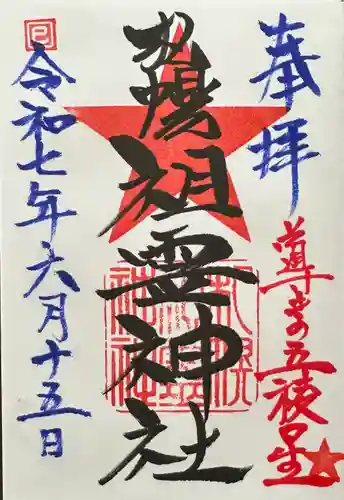 奉拝
導きの五稜星
札幌祖霊神社
令和七年六月十五日